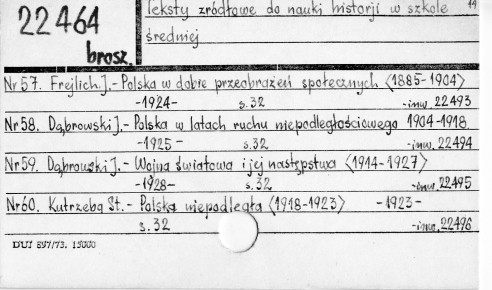 22 464
brosz.
Teksty źródłowe do nauki historji w szkole 44
średniej
Nr 57. Frejlich J. - Polska w dobie przeobrażeń społecznych (1885-1904)
-1924- s. 32 -inw. 22493
Nr 58. Dąbrowski J. - Polska w latach ruchu niepodległościowego 1904-1918.
-1925- s. 32 -inw. 22494
Nr 59. Dąbrowski J. - Wojna światowa i jej następstwa (1914-1927)
-1928- s. 32 -inw. 22495
Nr 60. Kutrzeba St. - Polska niepodległa (1918-1923) -1923-
s. 32 -inw. 22496
DUJ 897/73. 15000